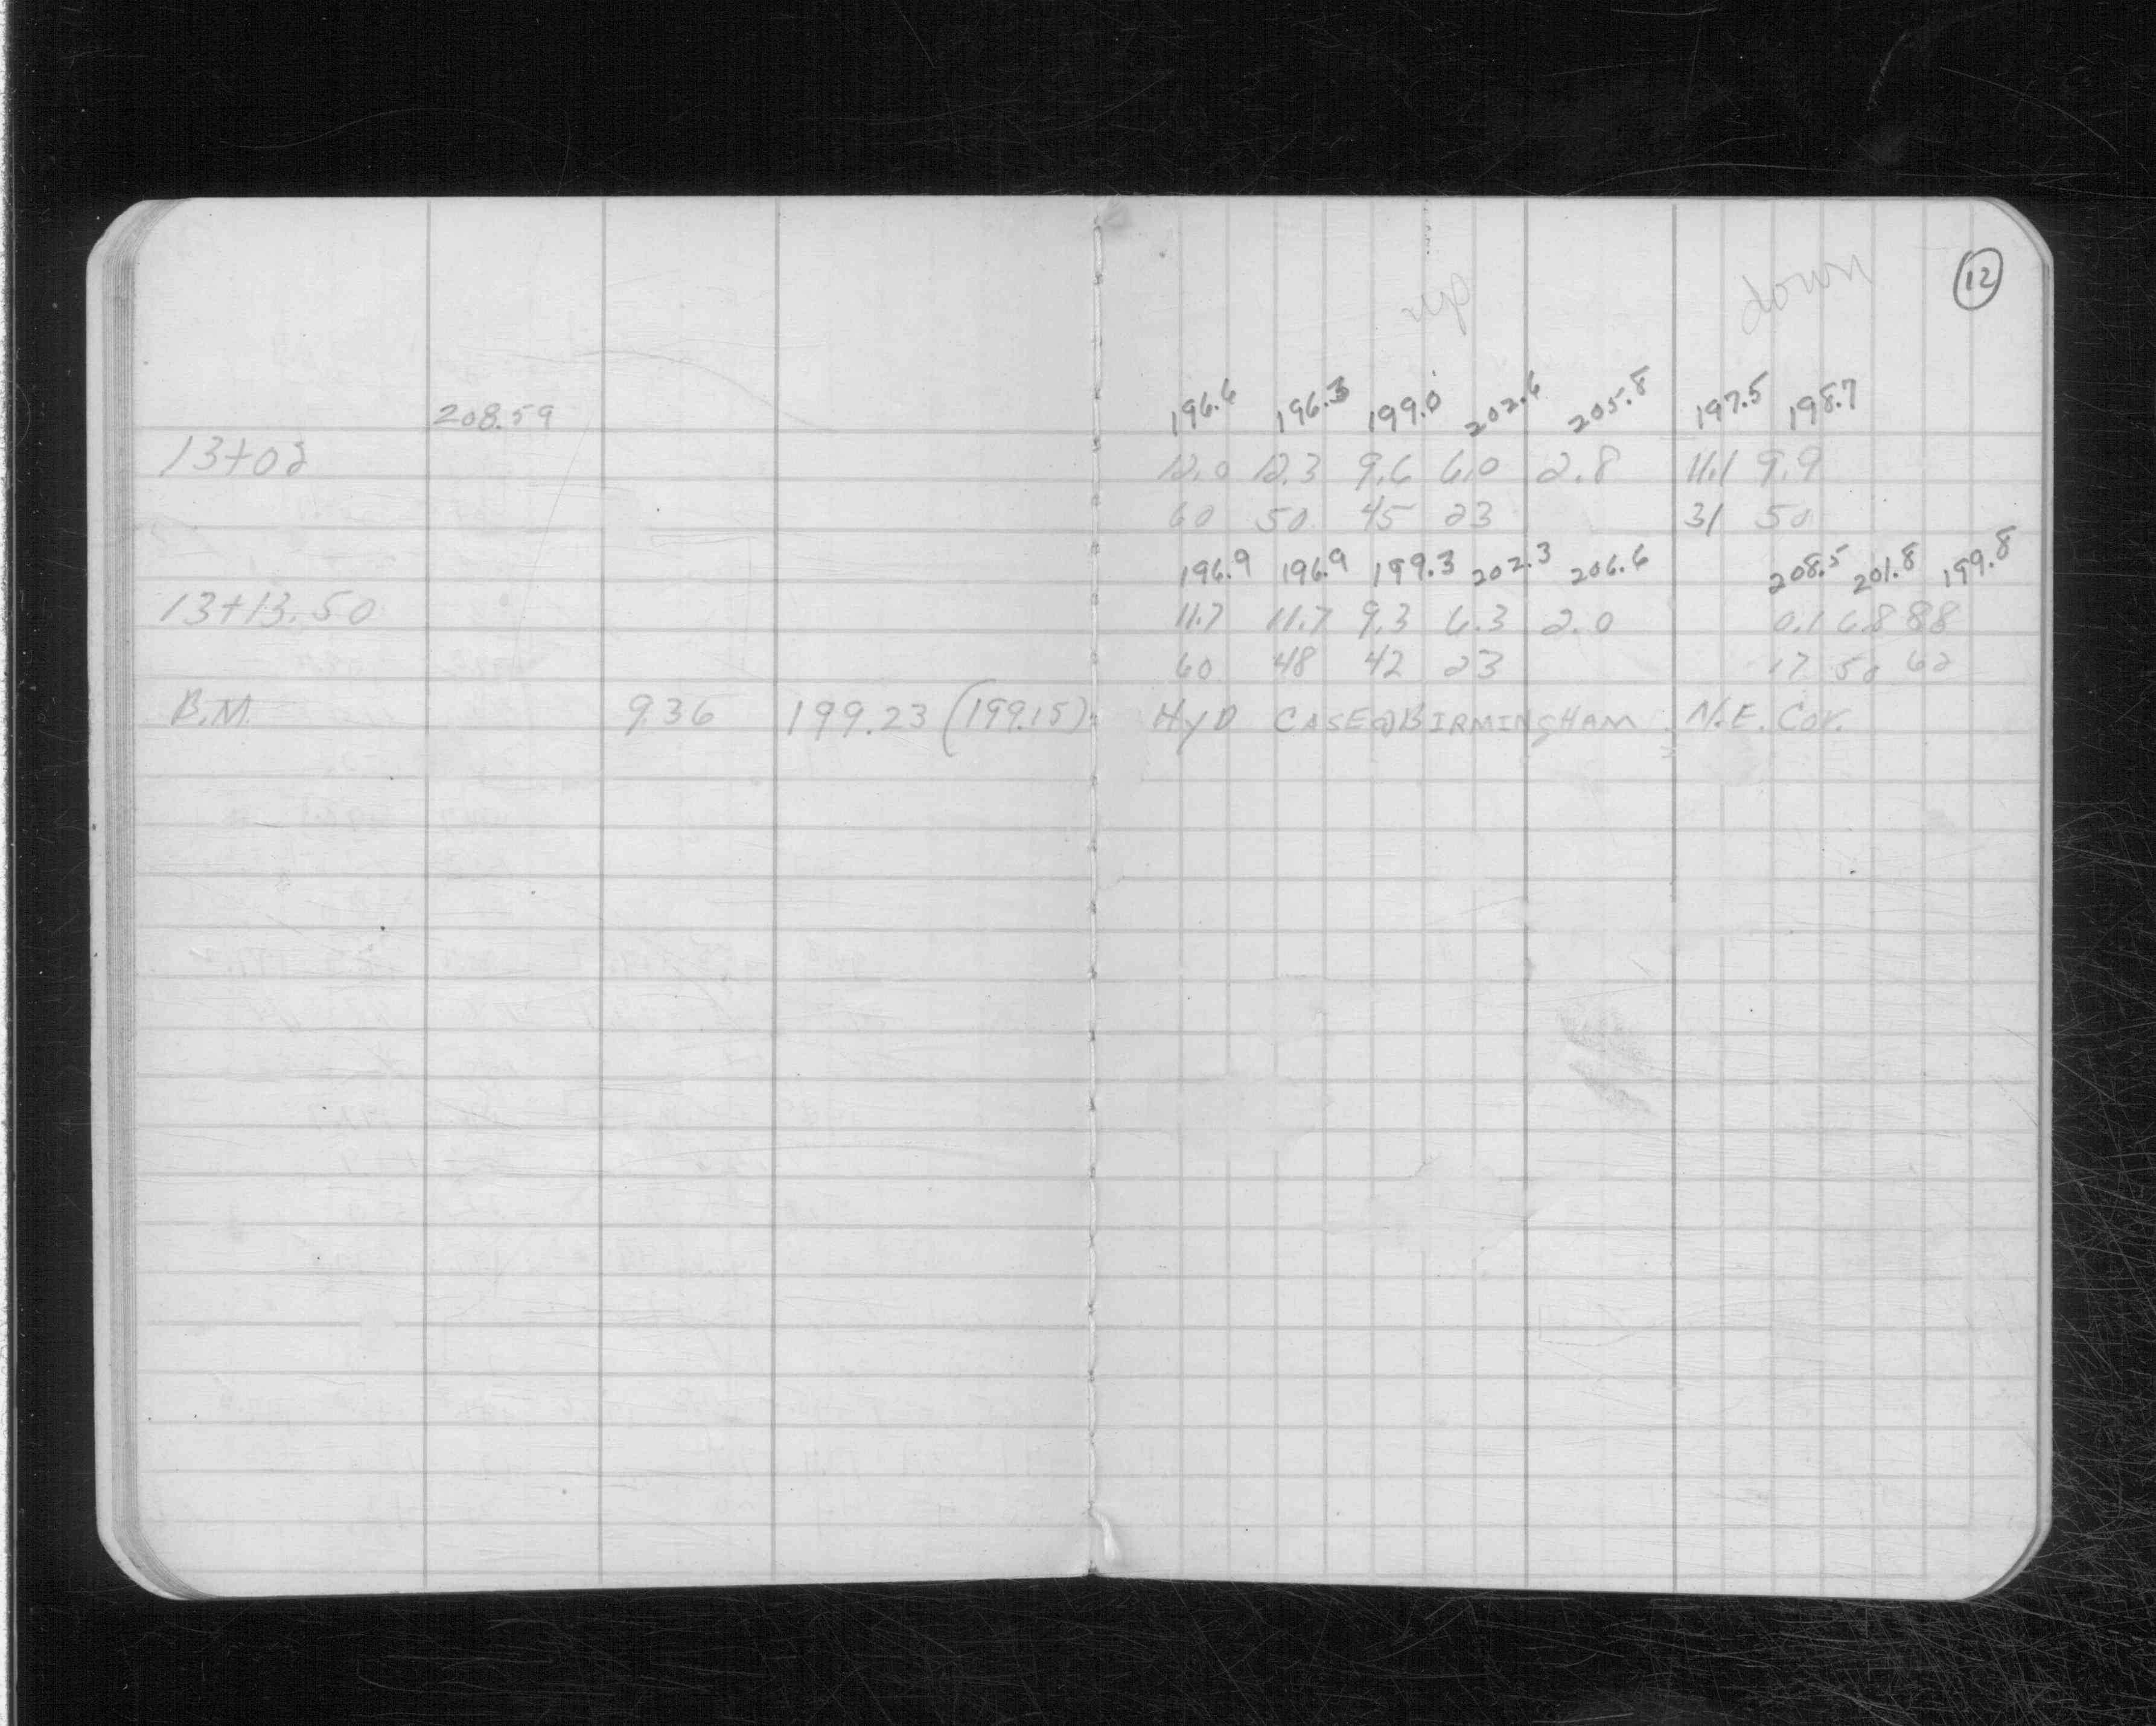 up down 12
208.59 196.6 196.3 199.0 202.6 205.8 197.5 198.7
13+02 12.0 12.3 9.6 6.0 2.8 11.1 9.9
60 50 45 23 31 50
196.9 196.9 199.3 202.3 206.6 208.5 201.8 199.8
13+13.50 11.7 11.7 9.3 6.3 2.0 0.1 6.8 8.8
60 48 42 23 17 50 62
B.M. 9.36 199.23 (199.15) HYD CASE @ BIRMINGHAM N.E. Cor.